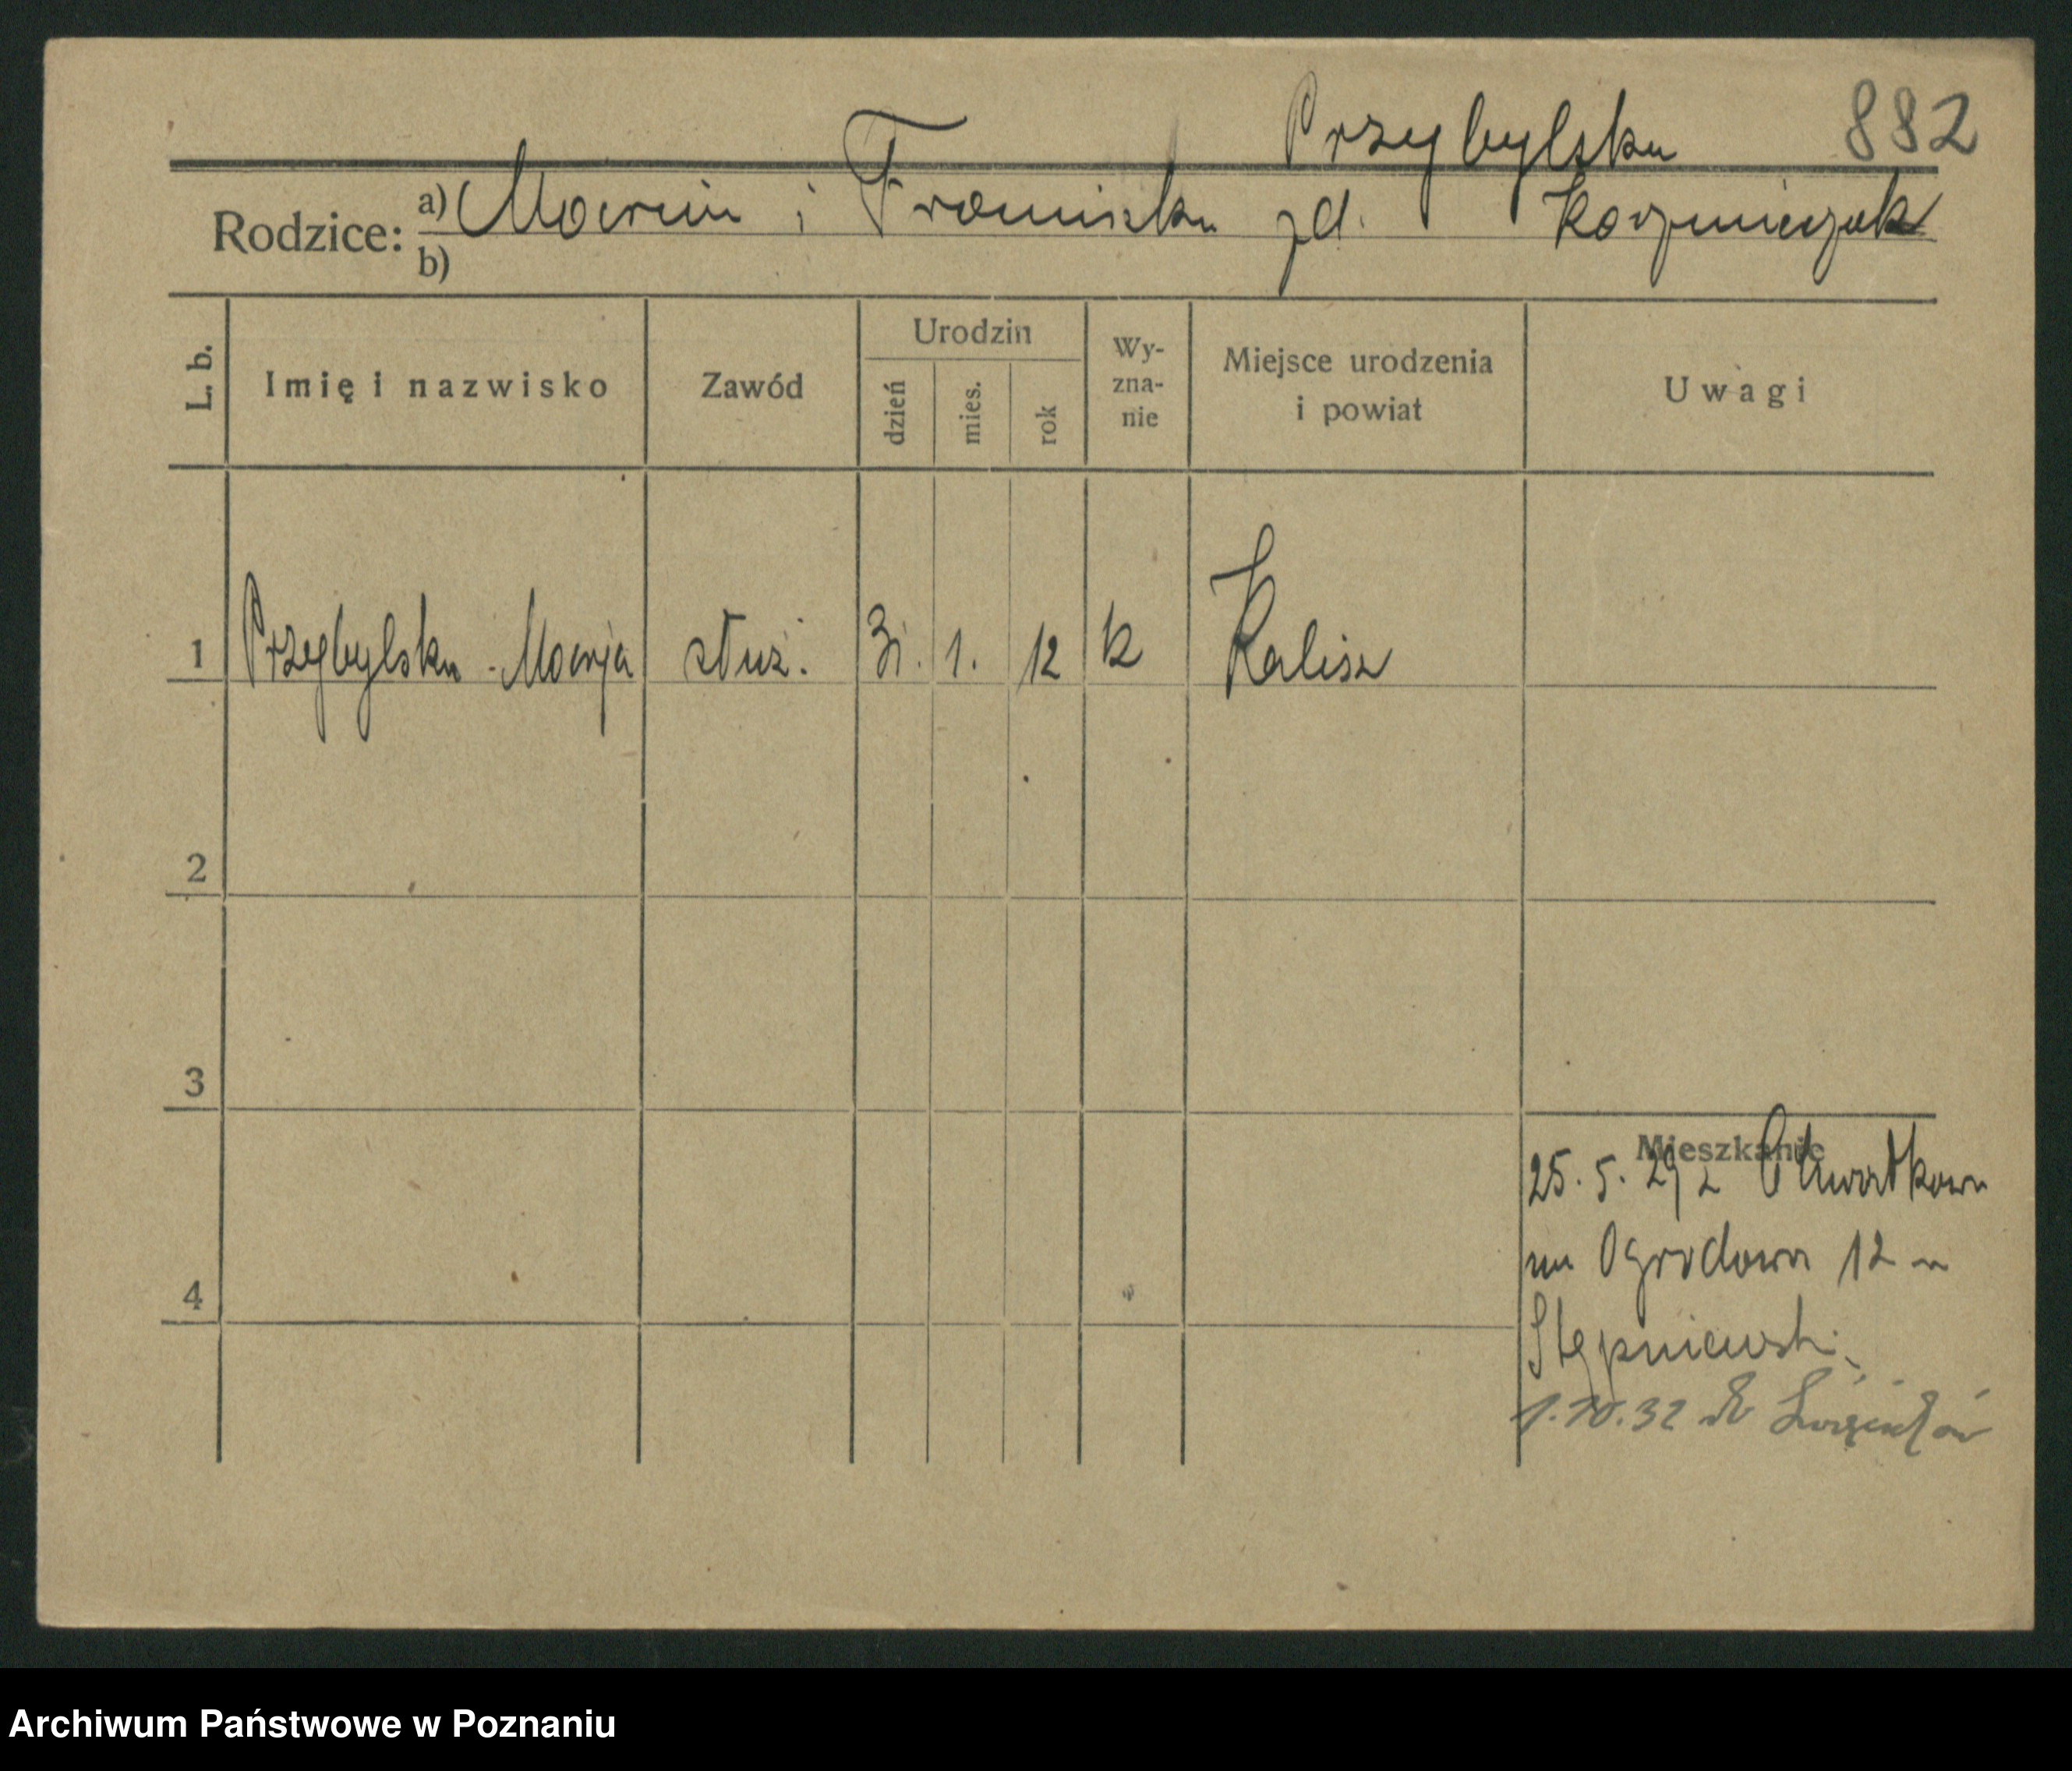 Przybylska 882
Rodzice: a) Marcin i Franciszka zd. Kaźmierczak
b)
L. b. Imię i nazwisko Zawód Urodzin dzień mies. rok Wy-zna-nie Miejsce urodzenia i powiat Uwagi
1 Przybylska Marja służ. 31. 1. 12 k Kalisz
2
3
Mieszkanie
25. 5. 29 z
na Ogrodowa 12 u
4
Stępniewski
1.10.32 do
Archiwum Państwowe w Poznaniu